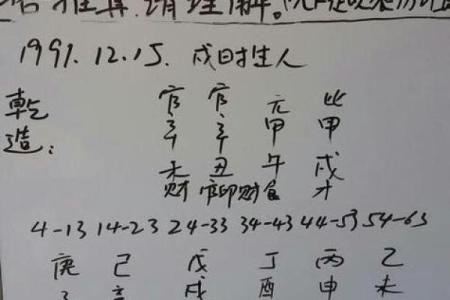 1991.12.15. 戌时生人
乾 官 官 元 比
造: 辛 辛 甲 甲
未 丑 午 戌
财 官印财 食 才
4-13 14-23 24-33 34-43 44-53 54-63
庚 己 戊 丁 丙 乙
戌 酉 申 未